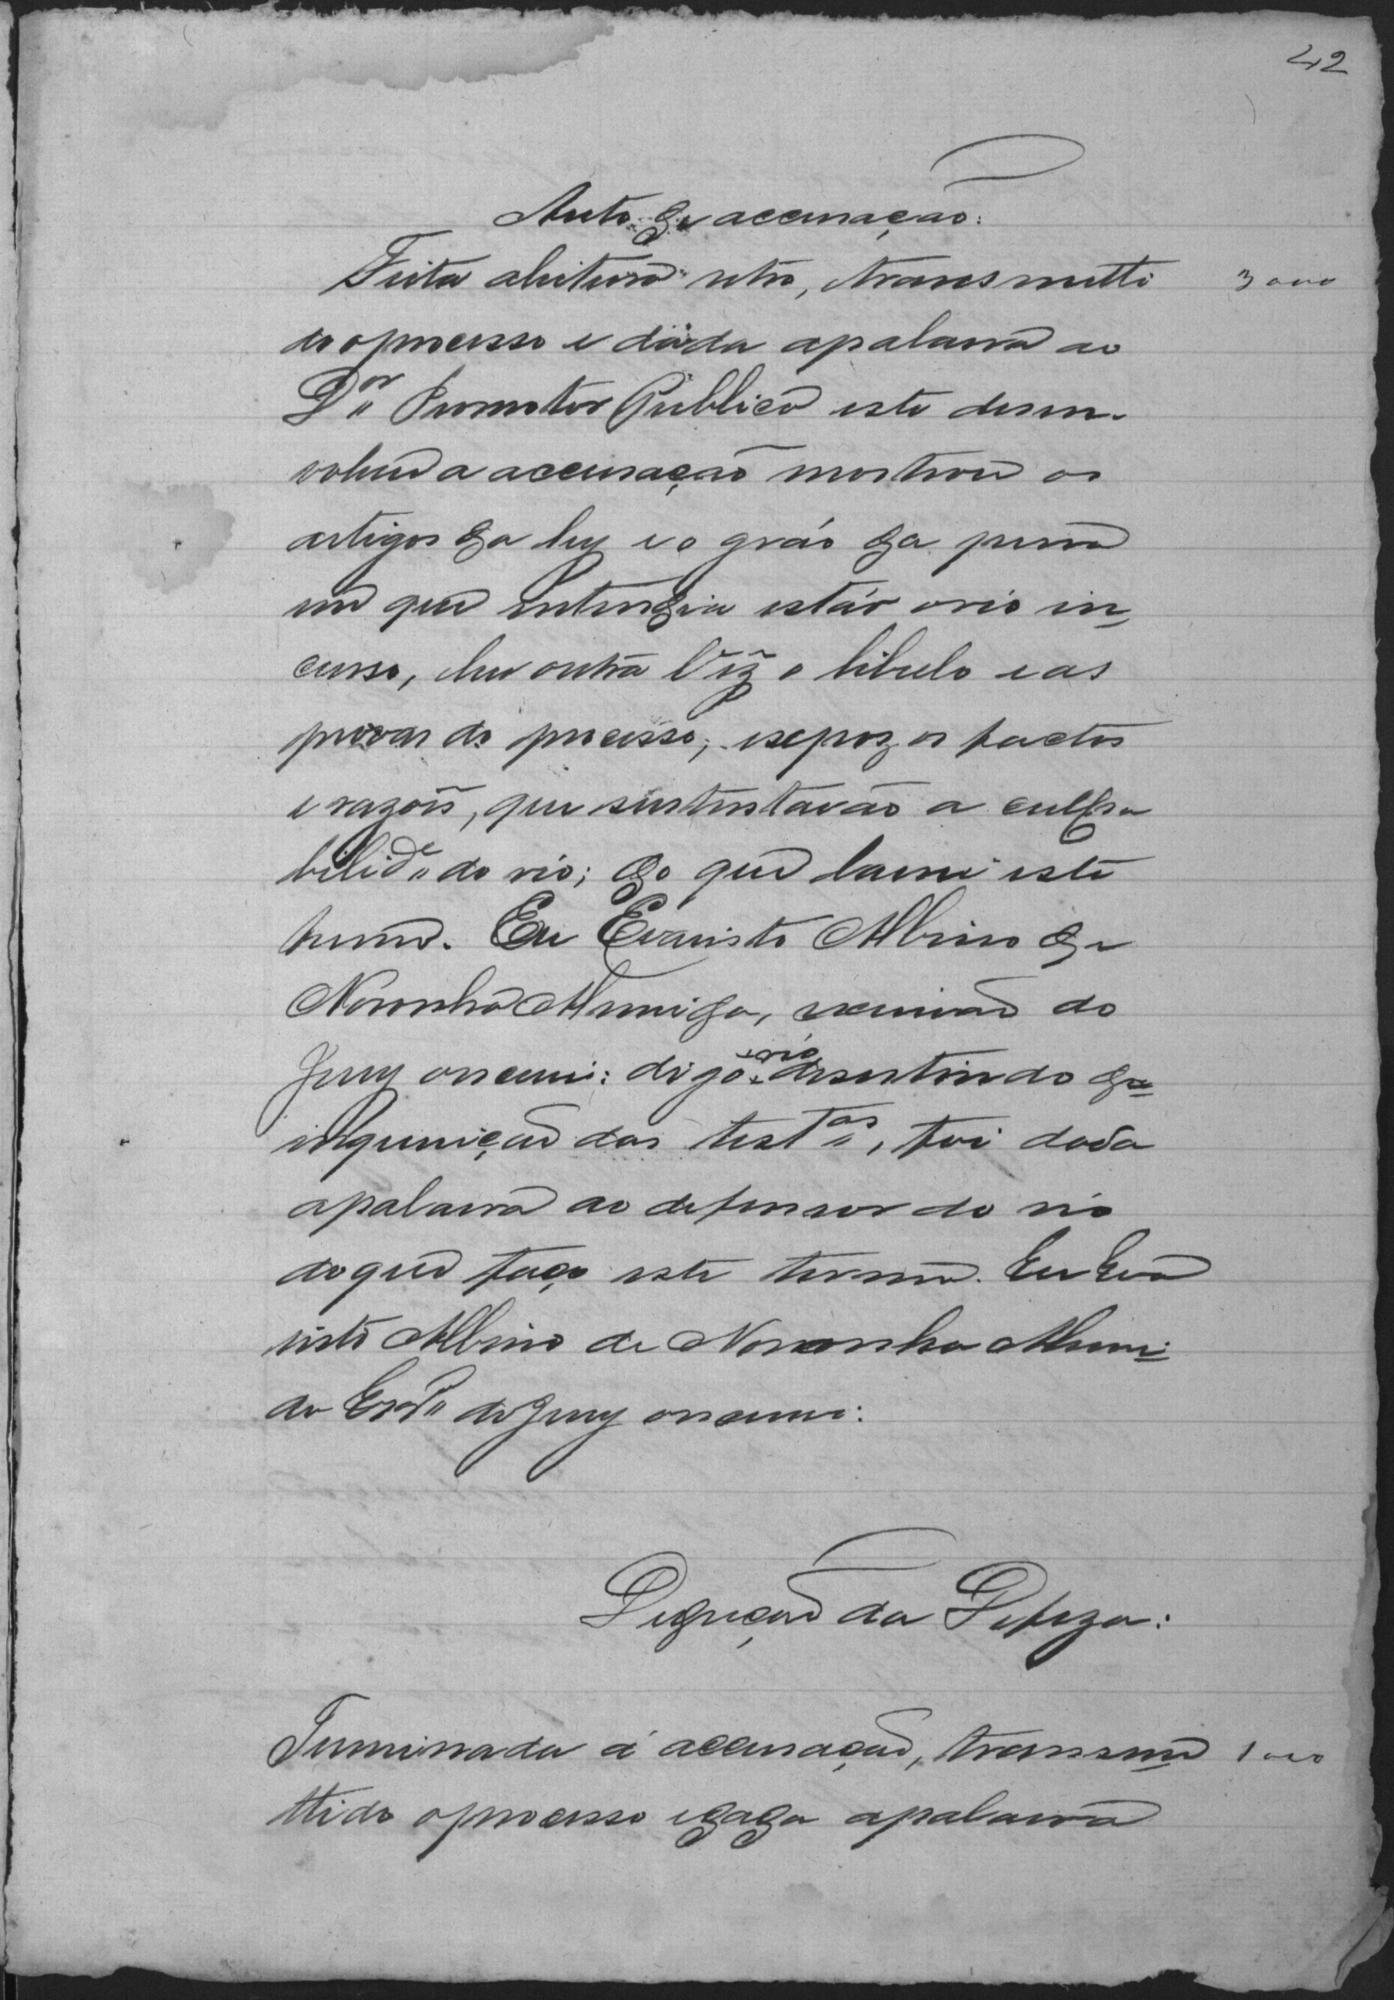 42
Auto de accusação:
Feita aleitura retro, transmetti 3000
do oprocesso e dáda apalavra ao
Dor Promotor Publico este desen-
volveo a accusação mostrou os
artigos da ley e o gráo da pena
em que entendia estár oréo in-
curso, leu outra vez o libelo e as
provas do processo, expoz os factos
e razoẽs, que sustentavão a culpa
bilide do réo; do que lavrei este
termo. Eu Evaristo Albino de
Noronha Almeida, escrivão do
Jury oscrevi: digo, réo desestindo da
inquirição das testas, foi dada
apalavra ao defensor do réo
doque faço este termo. Eu Eva
risto Albino de Noronha Almei-
da Escrão do Jury oscrevi:
Deducção da Defeza:
Terminada á accusação, transme 1000
ttido oprocesso edada apalavra